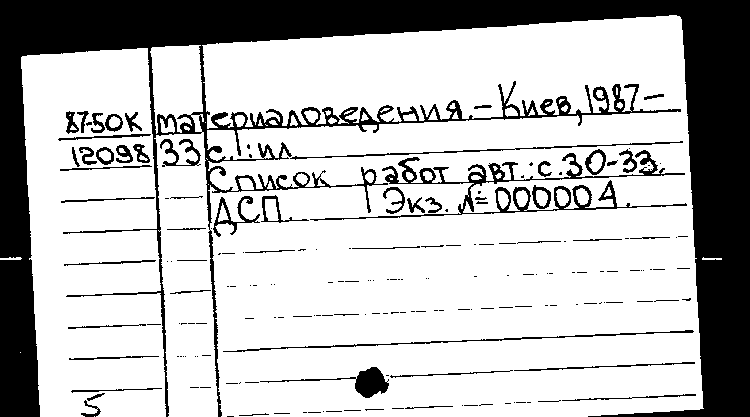 87-50К материаловедения.–Киев,1987–
12098 33 с.!:ил.
Список работ авт.:с.30-33.
ДСП. Экз.№000004.
5